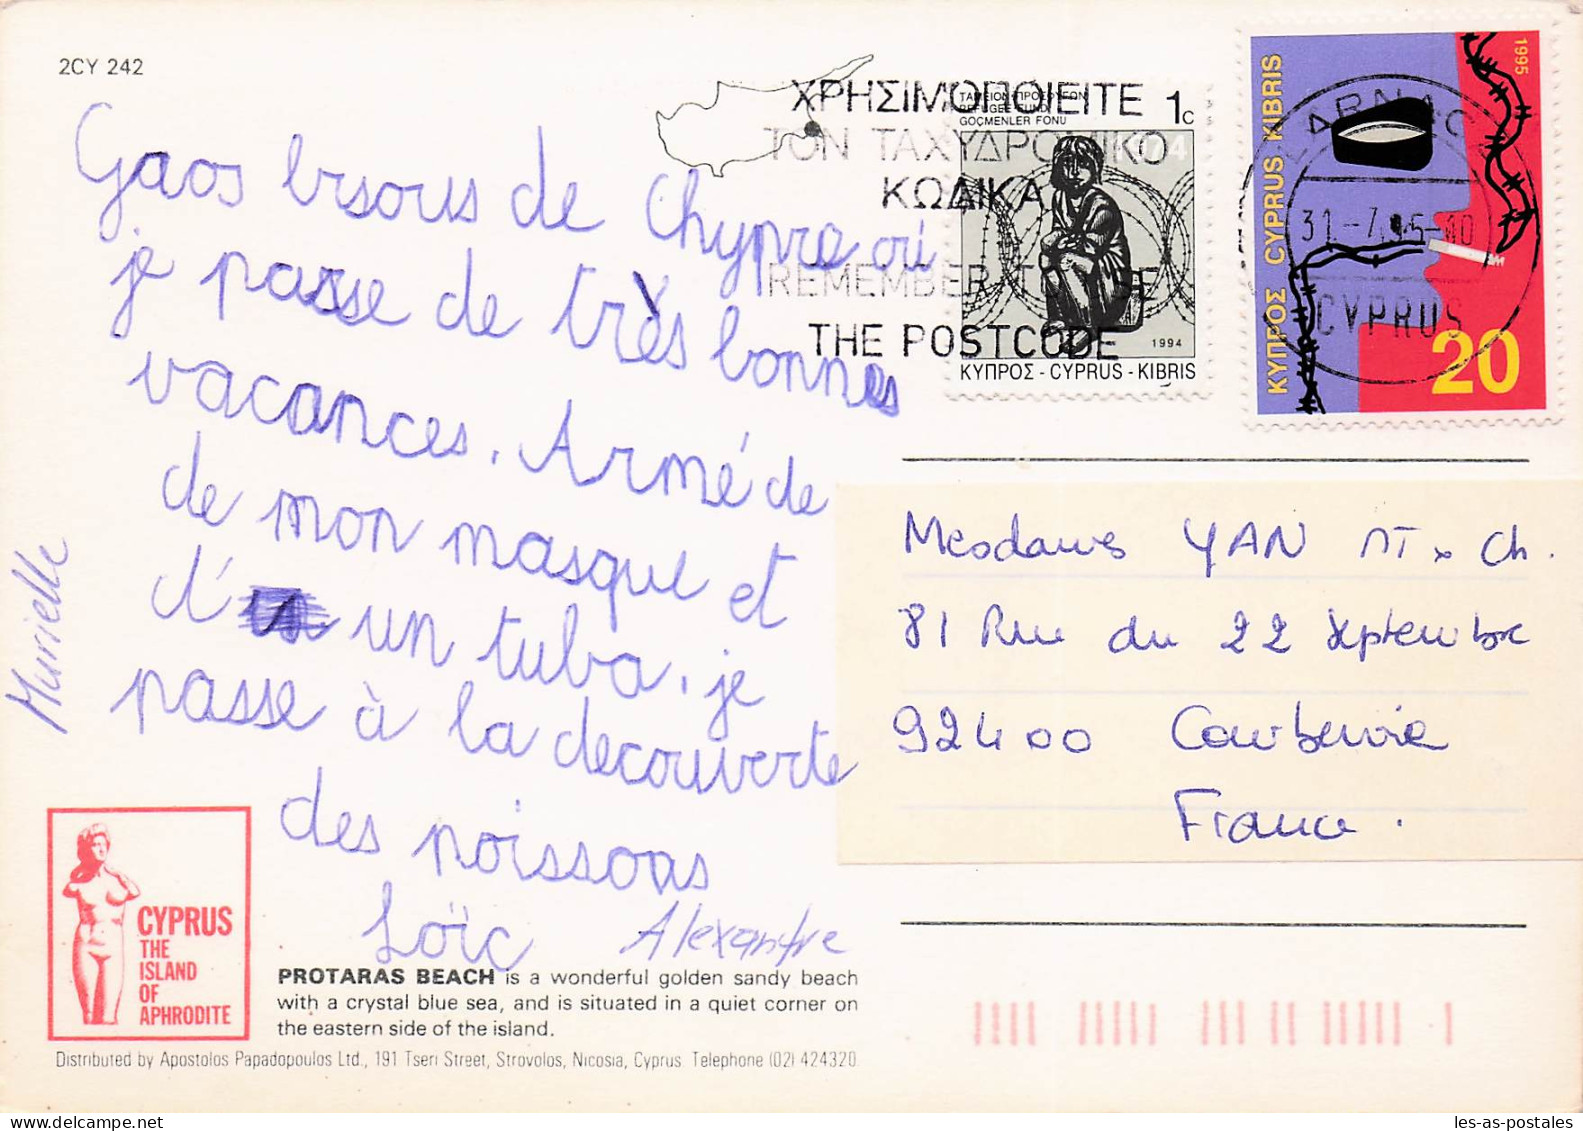 2CY 242
Gros bisous de Chypre où
je passe de très bonnes
vacances. Armé de
de mon masque et
d' un tuba, je
passe à la decouverte
des poissons
Loïc Alexandre
Murielle
ΧΡΗΣΙΜΟΠΟΙΕΙΤΕ
ΤΟΝ ΤΑΧΥΔΡΟΜΙΚΟ
ΚΩΔΙΚΑ
REMEMBER TO USE
THE POSTCODE
ΤΑΜΕΙΟΝ ΠΡΟΣΦΥΓΩΝ
REFUGEE FUND
GÖÇMENLER FONU
1c
1974
1994
ΚΥΠΡΟΣ - CYPRUS - KIBRIS
ΚΥΠΡΟΣ CYPRUS KIBRIS
1995
20
LARNACA
31.-7.95-10
CYPRUS
Mesdames YAN MT x Ch.
81 Rue du 22 septembre
92400 Courbevoie
France.
CYPRUS
THE
ISLAND
OF
APHRODITE
PROTARAS BEACH is a wonderful golden sandy beach
with a crystal blue sea, and is situated in a quiet corner on
the eastern side of the island.
Distributed by Apostolos Papadopoulos Ltd., 191 Tseri Street, Strovolos, Nicosia, Cyprus. Telephone (02) 424320
les-as-postales